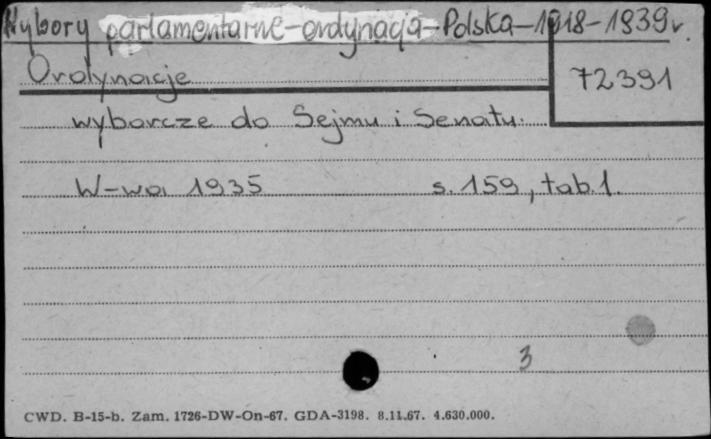 Wybory parlamentarne-ordynacja-Polska-1918-1939r.
Ordynacje
72391
wyborcze do Sejmu i Senatu.
W-wa 1935 s. 159, tab. 1.
3
CWD. B-15-b. Zam. 1726-DW-On-67. GDA-3198. 8.11.67. 4.630.000.